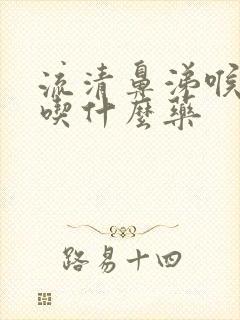 流清鼻涕喉
喫什麼藥
路易十四